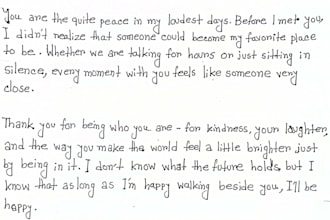 You are the quite peace in my loudest days. Before I met you,
I didn't realize that someone could become my favorite place
to be. Whether we are talking for hours or just sitting in
silence, every moment with you feels like someone very
close.
Thank you for being who you are - for kindness, your laughter,
and the way you make the world feel a little brighter just
by being in it. I don't know what the future holds, but I
know that as long as I'm happy walking beside you, I'll be
happy.